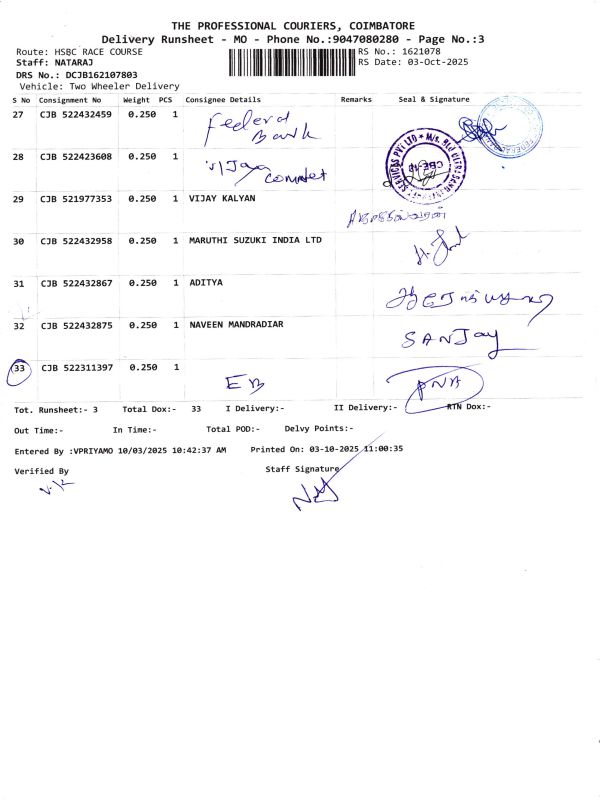 THE PROFESSIONAL COURIERS, COIMBATORE
Delivery Runsheet - MO - Phone No.:9047080280 - Page No.:3
Route: HSBC RACE COURSE
RS No.: 1621078
Staff: NATARAJ
RS Date: 03-Oct-2025
DRS No.: DCJB162107803
Vehicle: Two Wheeler Delivery
S No Consignment No Weight PCS Consignee Details Remarks Seal & Signature
27 CJB 522432459 0.250 1 Federal Bank
28 CJB 522423608 0.250 1 Vijay
29 CJB 521977353 0.250 1 VIJAY KALYAN
30 CJB 522432958 0.250 1 MARUTHI SUZUKI INDIA LTD
31 CJB 522432867 0.250 1 ADITYA
32 CJB 522432875 0.250 1 NAVEEN MANDRADIAR SANJay
33 CJB 522311397 0.250 1 EB PNB
Tot. Runsheet:- 3 Total Dox:- 33 I Delivery:- II Delivery:- RTN Dox:-
Out Time:- In Time:- Total POD:- Delvy Points:-
Entered By :VPRIYAMO 10/03/2025 10:42:37 AM Printed On: 03-10-2025 11:00:35
Verified By Staff Signature
V.K